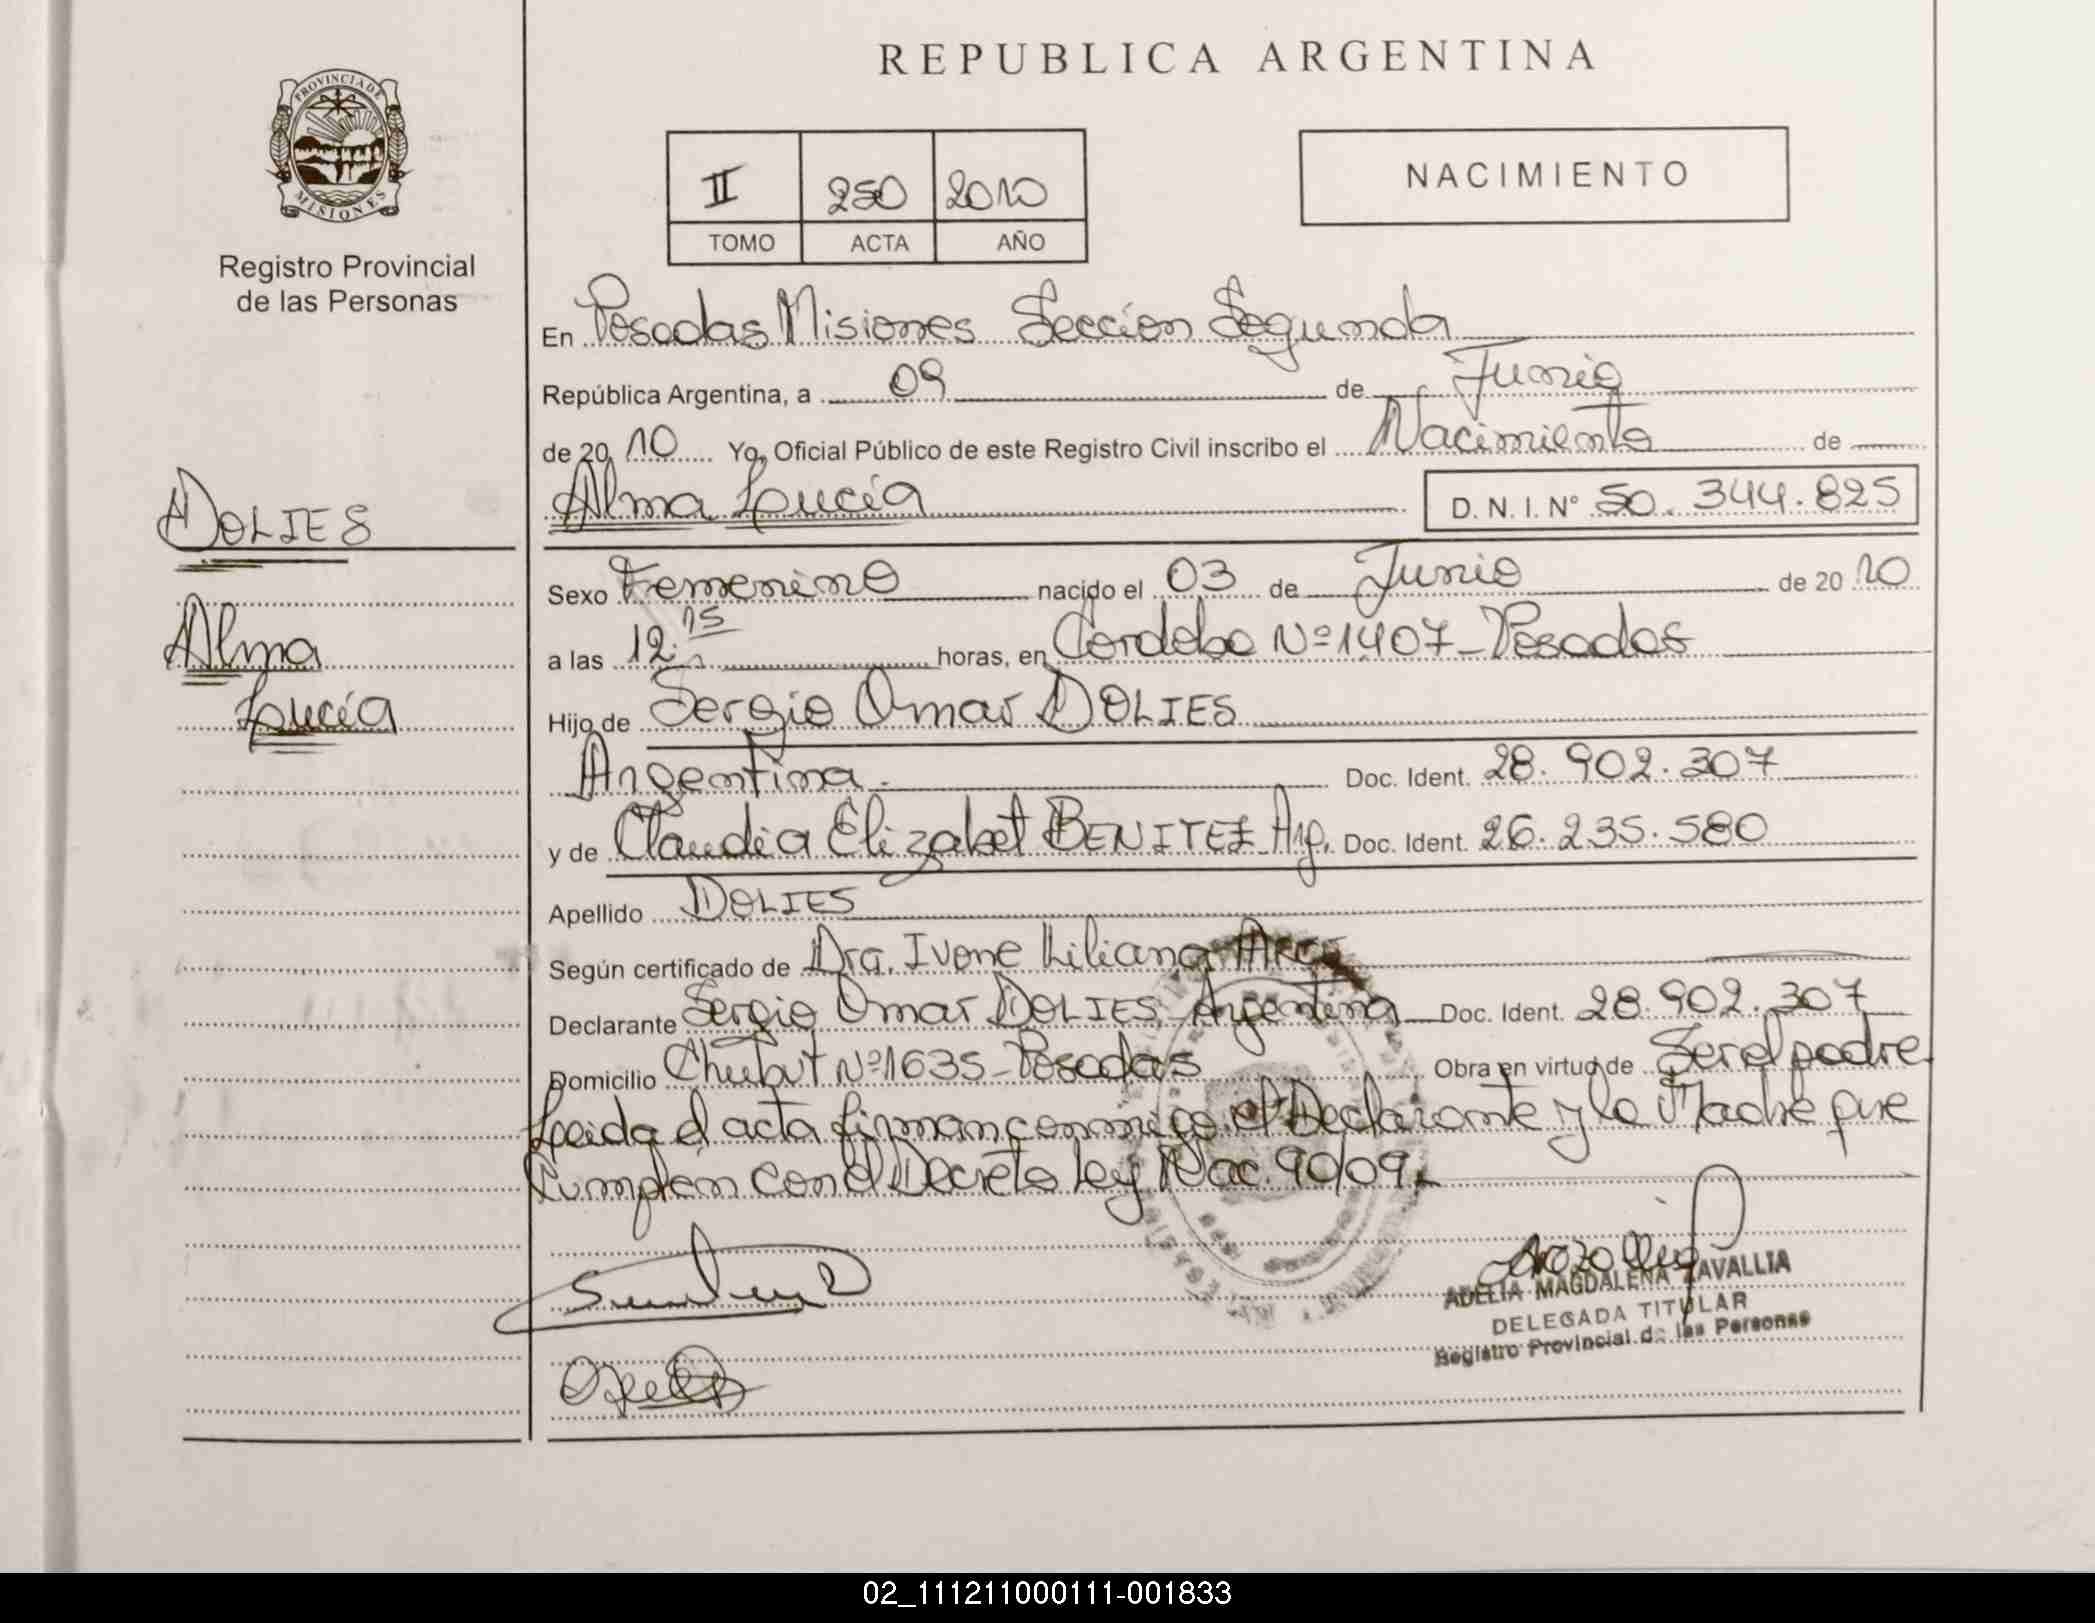 REPUBLICA ARGENTINA
PROVINCIA DE
MISIONES
Registro Provincial
de las Personas
II 250 2010
TOMO ACTA AÑO
NACIMIENTO
En Posadas Misiones Sección Segunda
República Argentina, a 09 de Junio
de 20 10 Yo, Oficial Público de este Registro Civil inscribo el Nacimiento de
Alma Lucía D. N. I. Nº 50.344.825
DOLIES
Alma
Lucía
Sexo Femenino nacido el 03 de Junio de 20 10
a las 12:15 horas, en Cordoba Nº 1407 - Posadas
Hijo de Sergio Omar DOLIES
Argentina. Doc. Ident. 28.902.307
y de Claudia Elizabet BENITEZ Arg. Doc. Ident. 26.235.580
Apellido DOLIES
Según certificado de Dra. Ivone Liliana Arce
Declarante Sergio Omar DOLIES Argentina Doc. Ident. 28.902.307
Domicilio Chubut Nº 1635 - Posadas Obra en virtud de Ser el padre
Leida el acta firman conmigo el Declarante y la Madre que
Cumplen con el Decreto Ley Nac. 90/09.-
ADELIA MAGDALENA ZAVALLIA
DELEGADA TITULAR
Registro Provincial de las Personas
02_111211000111-001833